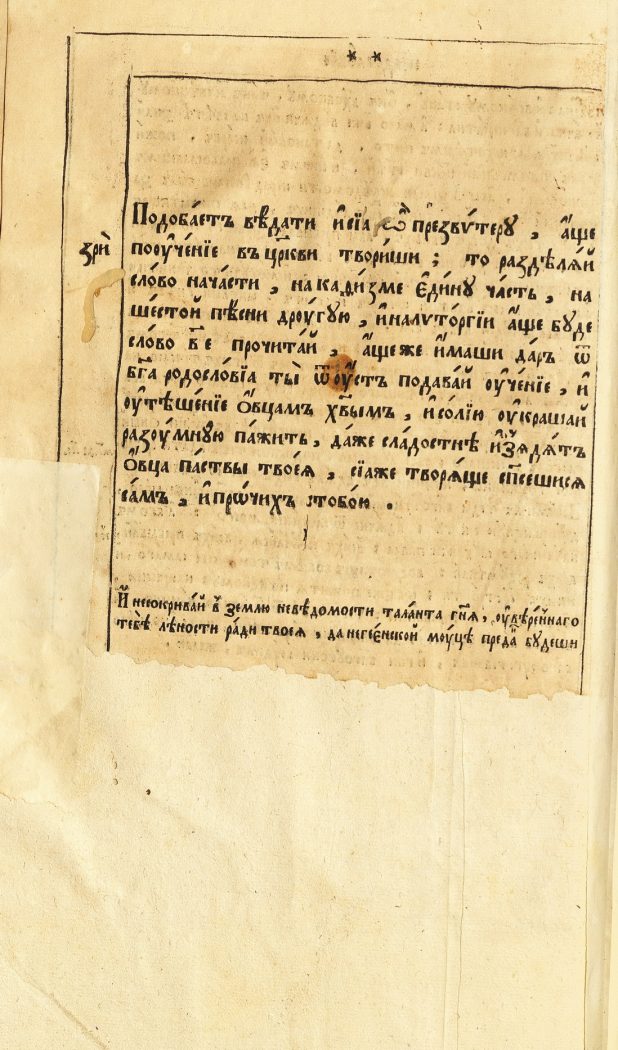 * *
Подоба́етъ вѣ́дати и҆ сїѧ̀ ѽ презвѵ́теру , а҆́ще
зрѝ
поѹче́нїе въ цр҃кви твори́ши ; то раздѣлѧ́й
сло́во нача́сти , на каѳи́зме є҆ди́ну ча́сть , на
шестой пѣ́сни дроугу́ю , и҆ налѵто́ргїи а҆́ще буде
сло́во все прочита́й , а҆́ще же и҆́маши да́ръ ѿ
бг҃а родосло́вїѧ ты̀ ѿ оу҆́стъ подава́й оу҆че́нїе , и҆
оу҆тѣше́нїе ѻ҆́вцамъ хв҃ымъ , и҆ со́лїю оу҆краша́й
разоу́мную па́жить , да́же сла́достнѣ и҆з̾ѧдѧ́тъ
ѻ҆́вца па́ствы твоеѧ̀ , сїѧ́же творѧ́ще сп҃сешисѧ
са́мъ , и҆ про́чихъ стобо́ю .
И҆ несокрива́й в̾ зе́млю невѣ́домости тала́нта гн҃ѧ , оу҆вѣ́реннаго
тебѣ̀ лѣ́ности ра́ди твоеѧ̀ , да не гее́нской моу́це преда́н бу́деши